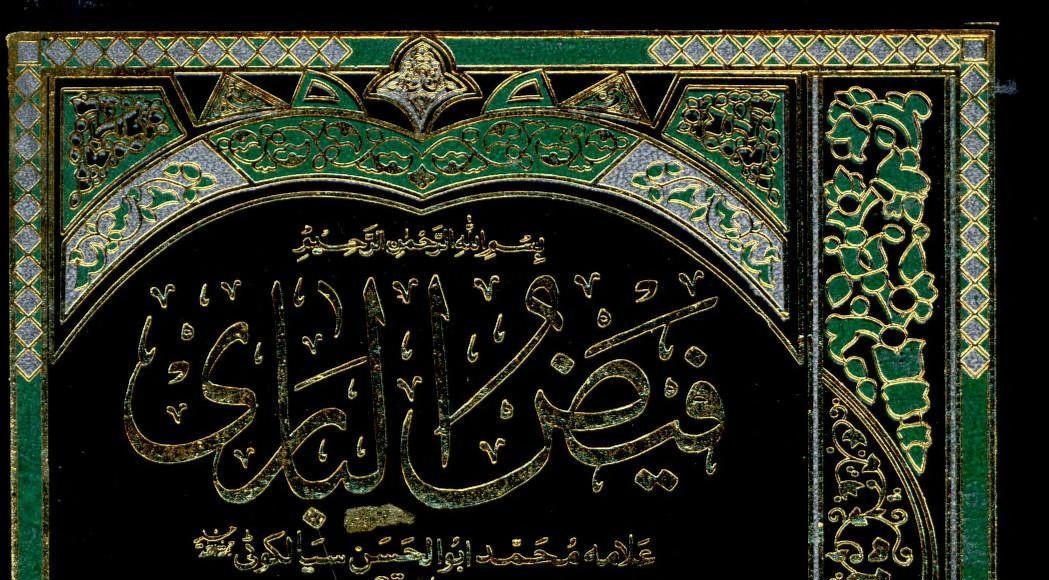 بسم الله الرحمن الرحيم
فیض الباری
علامه محمد ابوالحسن سیالکوٹی